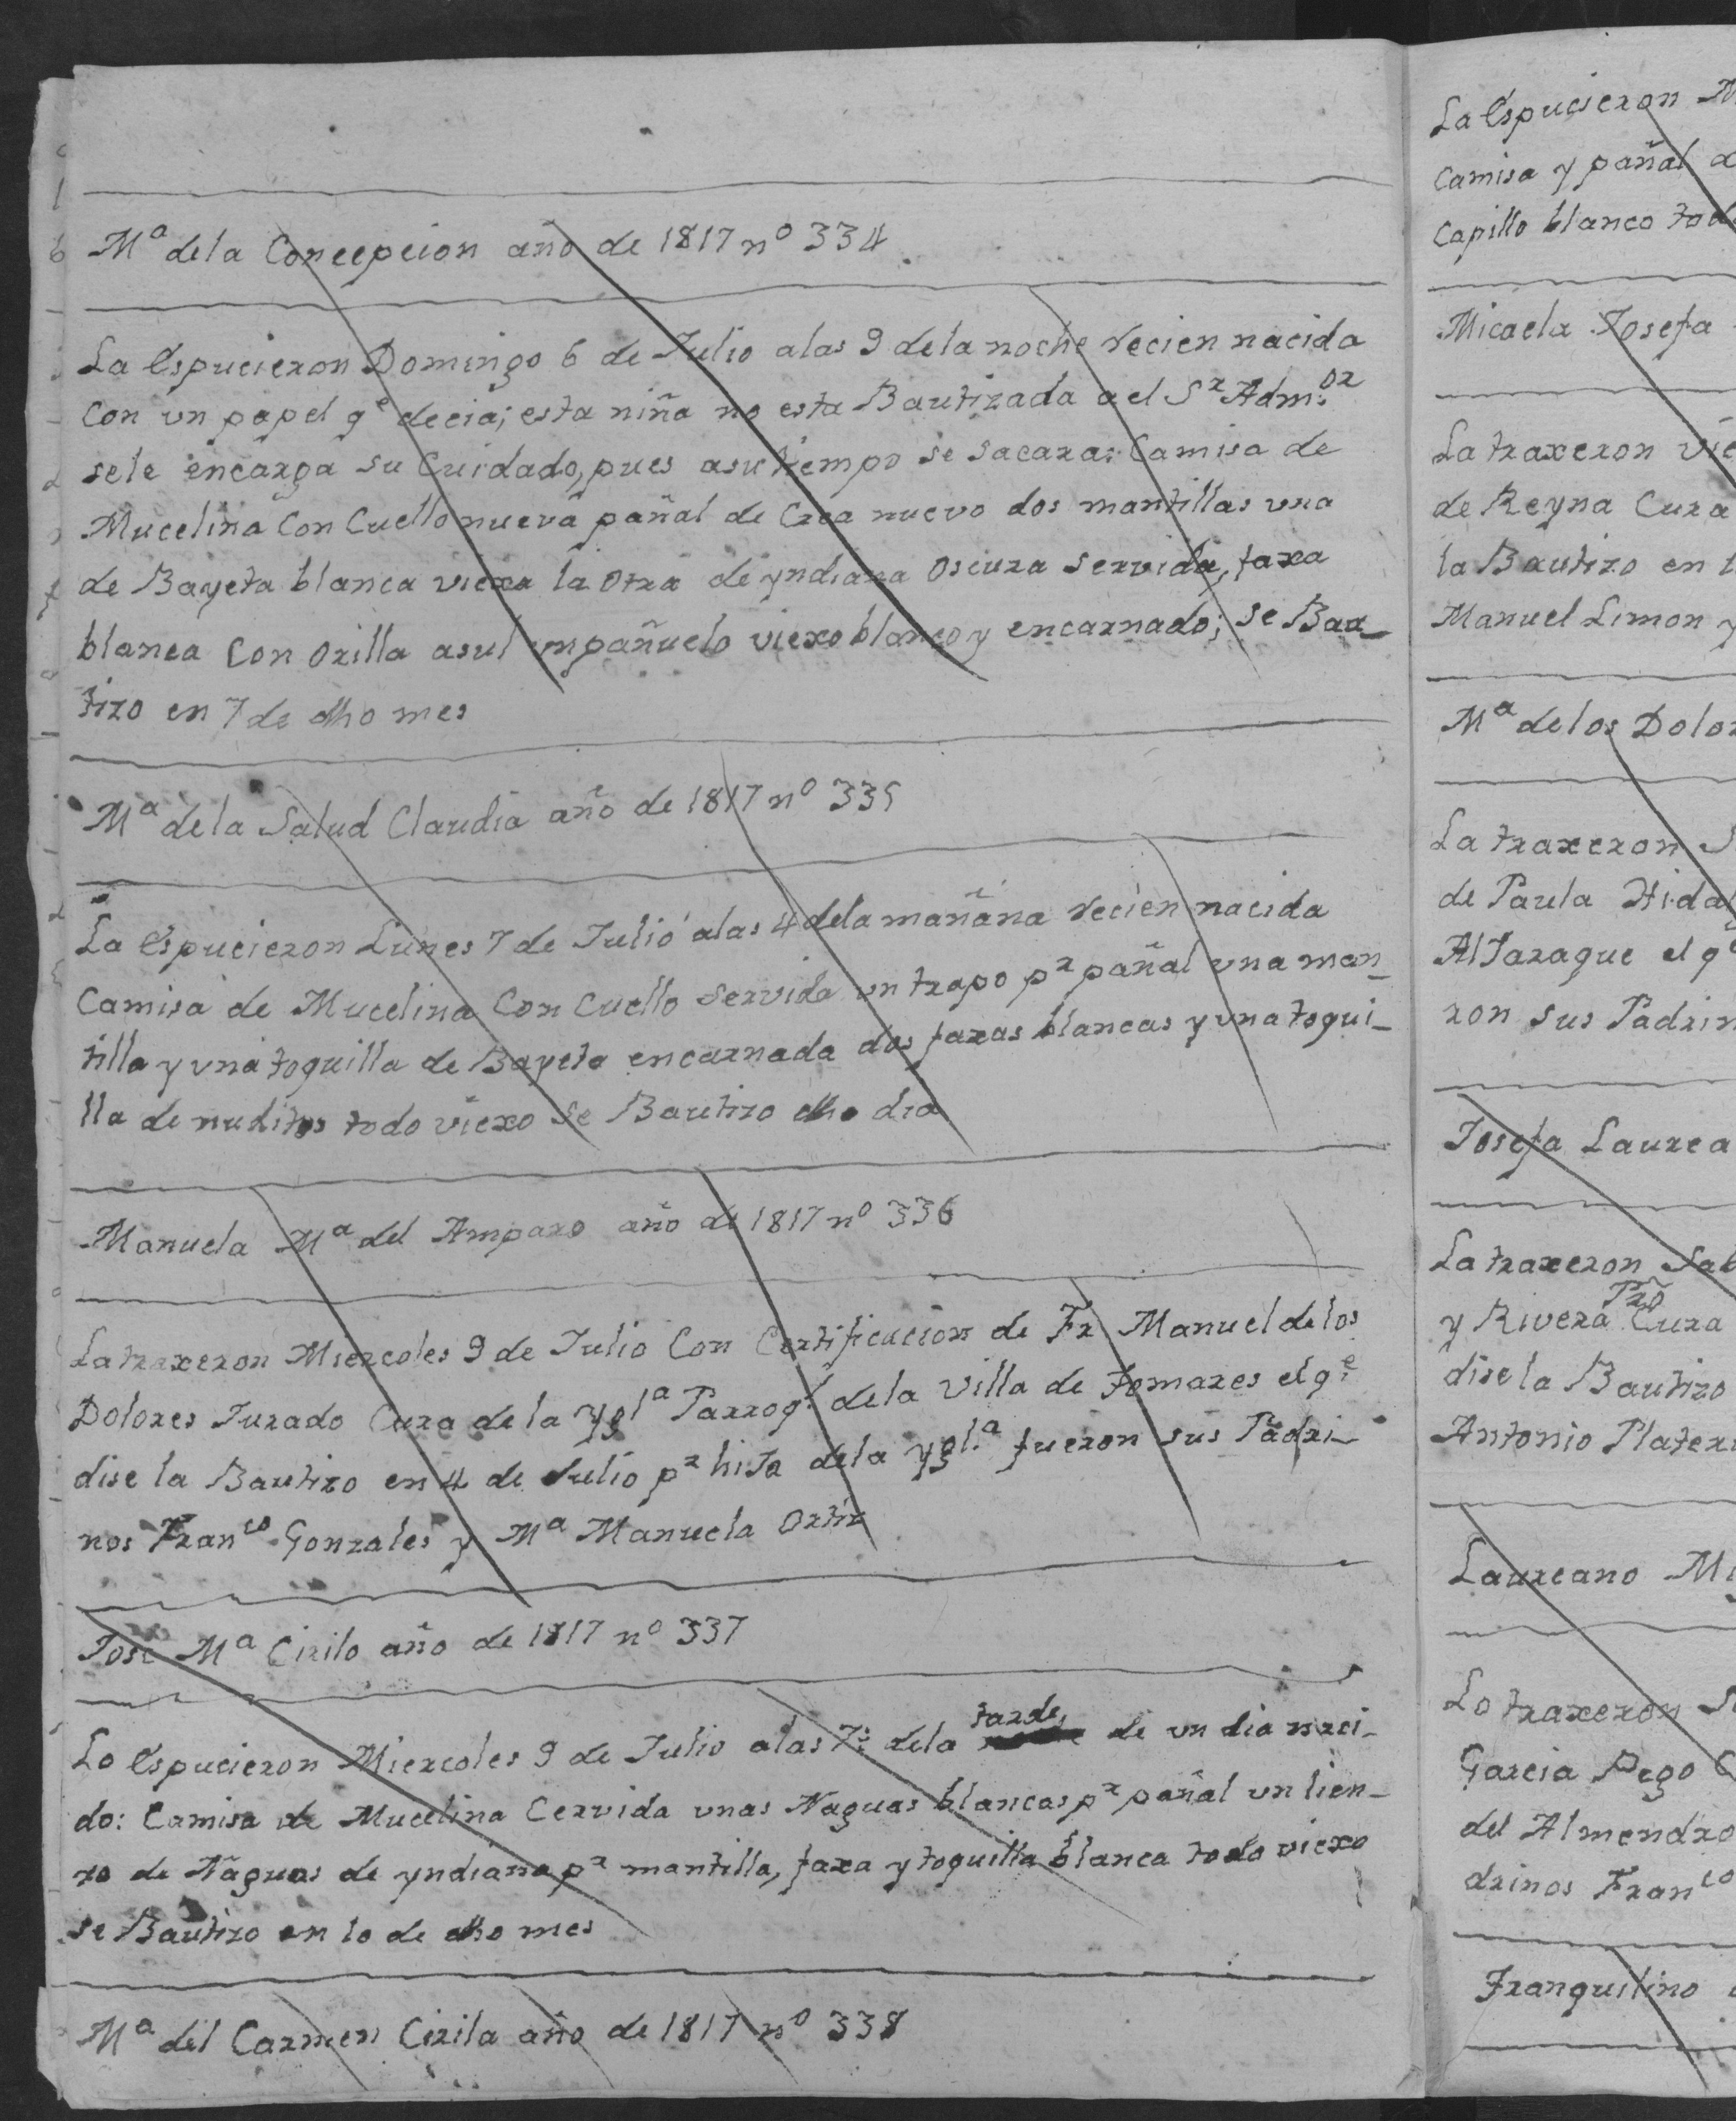 Mª dela Concepcion año de 1817 nº 334
La Espucieron Domingo 6 de Julio alas 9 dela noche recien nacida
Con vn papel qᵉ decia; esta niña no esta Bautizada a el Sʳ Adm.ᵒʳ
sele encarga su Cuidado, pues asu tiempo se sacara: Camisa de
Mucelina Con Cuello nueva pañal de Crea nuevo dos mantillas vna
de Bayeta blanca viexa la Otra de yndiana Oscura servida, faxa
blanca Con Orilla asul vn pañuelo viexo blanco y encarnado; se Bau_
tizo en 7 de dho mes
Mª dela Salud Claudia año de 1817 nº 335
La Espucieron Lunes 7 de Julio alas 4 dela mañana recien nacida
Camisa de Mucelina Con Cuello servida vn trapo pʳ pañal vna man_
tilla y vna toquilla de Bayeta encarnada dos faxas blancas y vna toqui_
lla de nuditos todo viexo se Bautizo dho dia
Manuela Mª del Amparo año de 1817 nº 336
La traxeron Miercoles 9 de Julio Con Certificacion de Fr Manuel delos
Dolores Jurado Cura de la Yglª Parroq.ˡ dela Villa de Tomares el q.ᵉ
dise la Bautizo en 4 de Julio pʳ hiJa dela ygl.ª fueron sus Padri_
nos Franᶜᵒ Gonzales y Mª Manuela Ortiz
Jose Mª Cirilo año de 1817 nº 337
Lo Espucieron Miercoles 9 de Julio alas 7: dela tarde, de vn dia naci_
do: Camisa de Mucelina Cervida vnas Naguas blancas pʳ pañal vn lien_
zo de Naguas de yndiana pʳ mantilla, faxa y toquilla blanca todo viexo
se Bautizo en 10 de dho mes
Mª del Carmen Cirila año de 1817 nº 338
La Espucieron
Camisa y pañal
Capillo blanco
Micaela Josefa
La traxeron
de Reyna Cura
la Bautizo en
Manuel Limon y
Mª delos
La traxeron
de Paula
AlJaraque el
ron sus
Josefa
La traxeron
y Rivera Pro Cura
dise la Bautizo
Antonio
Laureano
Lo traxeron
Garcia Pego
del Almendro
drinos Franᶜᵒ
Tranquilino